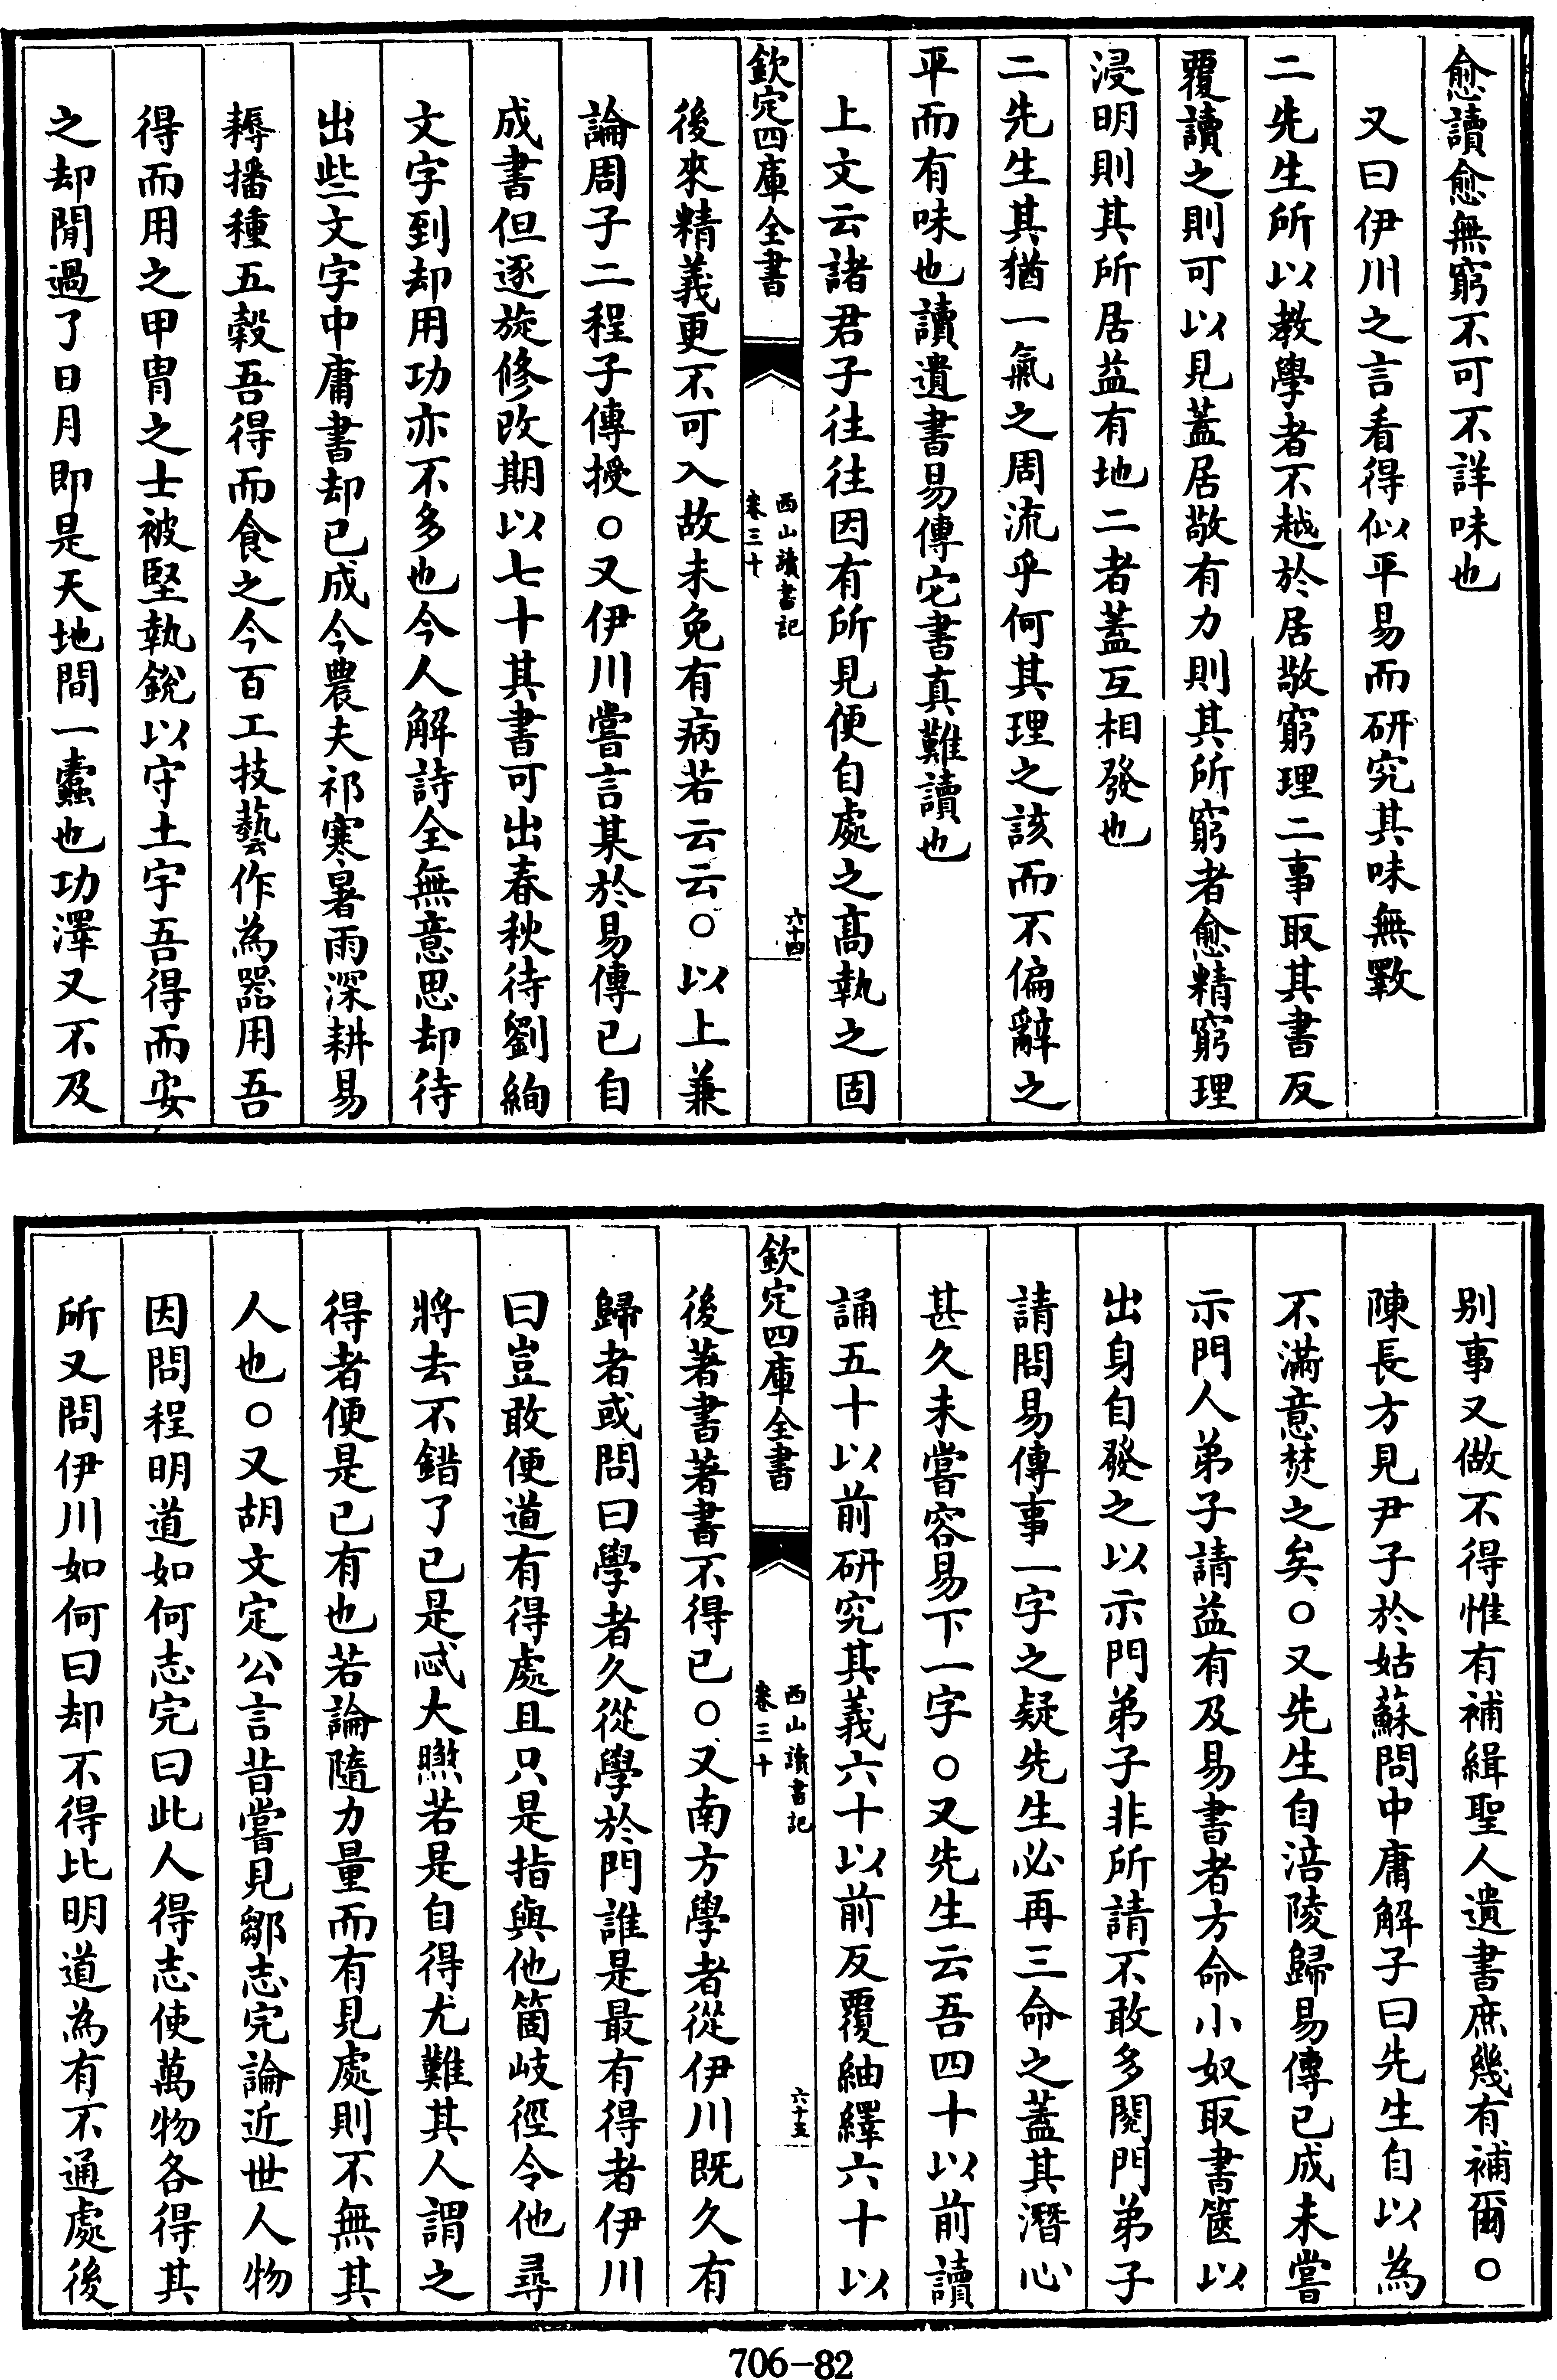 愈讀愈無窮不可不詳味也
又曰伊川之言看得似平易而研究其味無斁
二先生所以教學者不越於居敬窮理二事取其書反
覆讀之則可以見蓋居敬有力則其所窮者愈精窮理
浸明則其所居益有地二者蓋互相發也
二先生其猶一氣之周流乎何其理之該而不偏辭之
平而有味也讀遺書易傳它書真難讀也
上文云諸君子往往因有所見便自處之高執之固
欽定四庫全書
西山讀書記
卷三十
六十四
後來精義更不可入故未免有病若云云○以上兼
論周子二程子傳授○又伊川嘗言某於易傳已自
成書但逐旋修改期以七十其書可出春秋待劉絢
文字到却用功亦不多也今人解詩全無意思却待
出些文字中庸書却已成今農夫祁寒暑雨深耕易
耨播種五榖吾得而食之今百工技藝作為器用吾
得而用之甲胄之士被堅執銳以守土宇吾得而安
之却閒過了日月即是天地間一蠹也功澤又不及
别事又做不得惟有補緝聖人遺書庶幾有補爾○
陳長方見尹子於姑蘇問中庸解子曰先生自以為
不滿意焚之矣○又先生自涪陵歸易傳已成未嘗
示門人弟子請益有及易書者方命小奴取書篋以
出身自發之以示門弟子非所請不敢多閱門弟子
請問易傳事一字之疑先生必再三命之蓋其潛心
甚久未嘗容易下一字○又先生云吾四十以前讀
誦五十以前研究其義六十以前反覆紬繹六十以
欽定四庫全書
西山讀書記
卷三十
六十五
後著書著書不得已○又南方學者從伊川既久有
歸者或問曰學者久從學於門誰是最有得者伊川
曰豈敢便道有得處且只是指與他箇岐徑令他尋
將去不錯了已是忒大㬢若是自得尤難其人謂之
得者便是已有也若論隨力量而有見處則不無其
人也○又胡文定公言昔嘗見鄒志完論近世人物
因問程明道如何志完曰此人得志使萬物各得其
所又問伊川如何曰却不得比明道為有不通處後
706-82